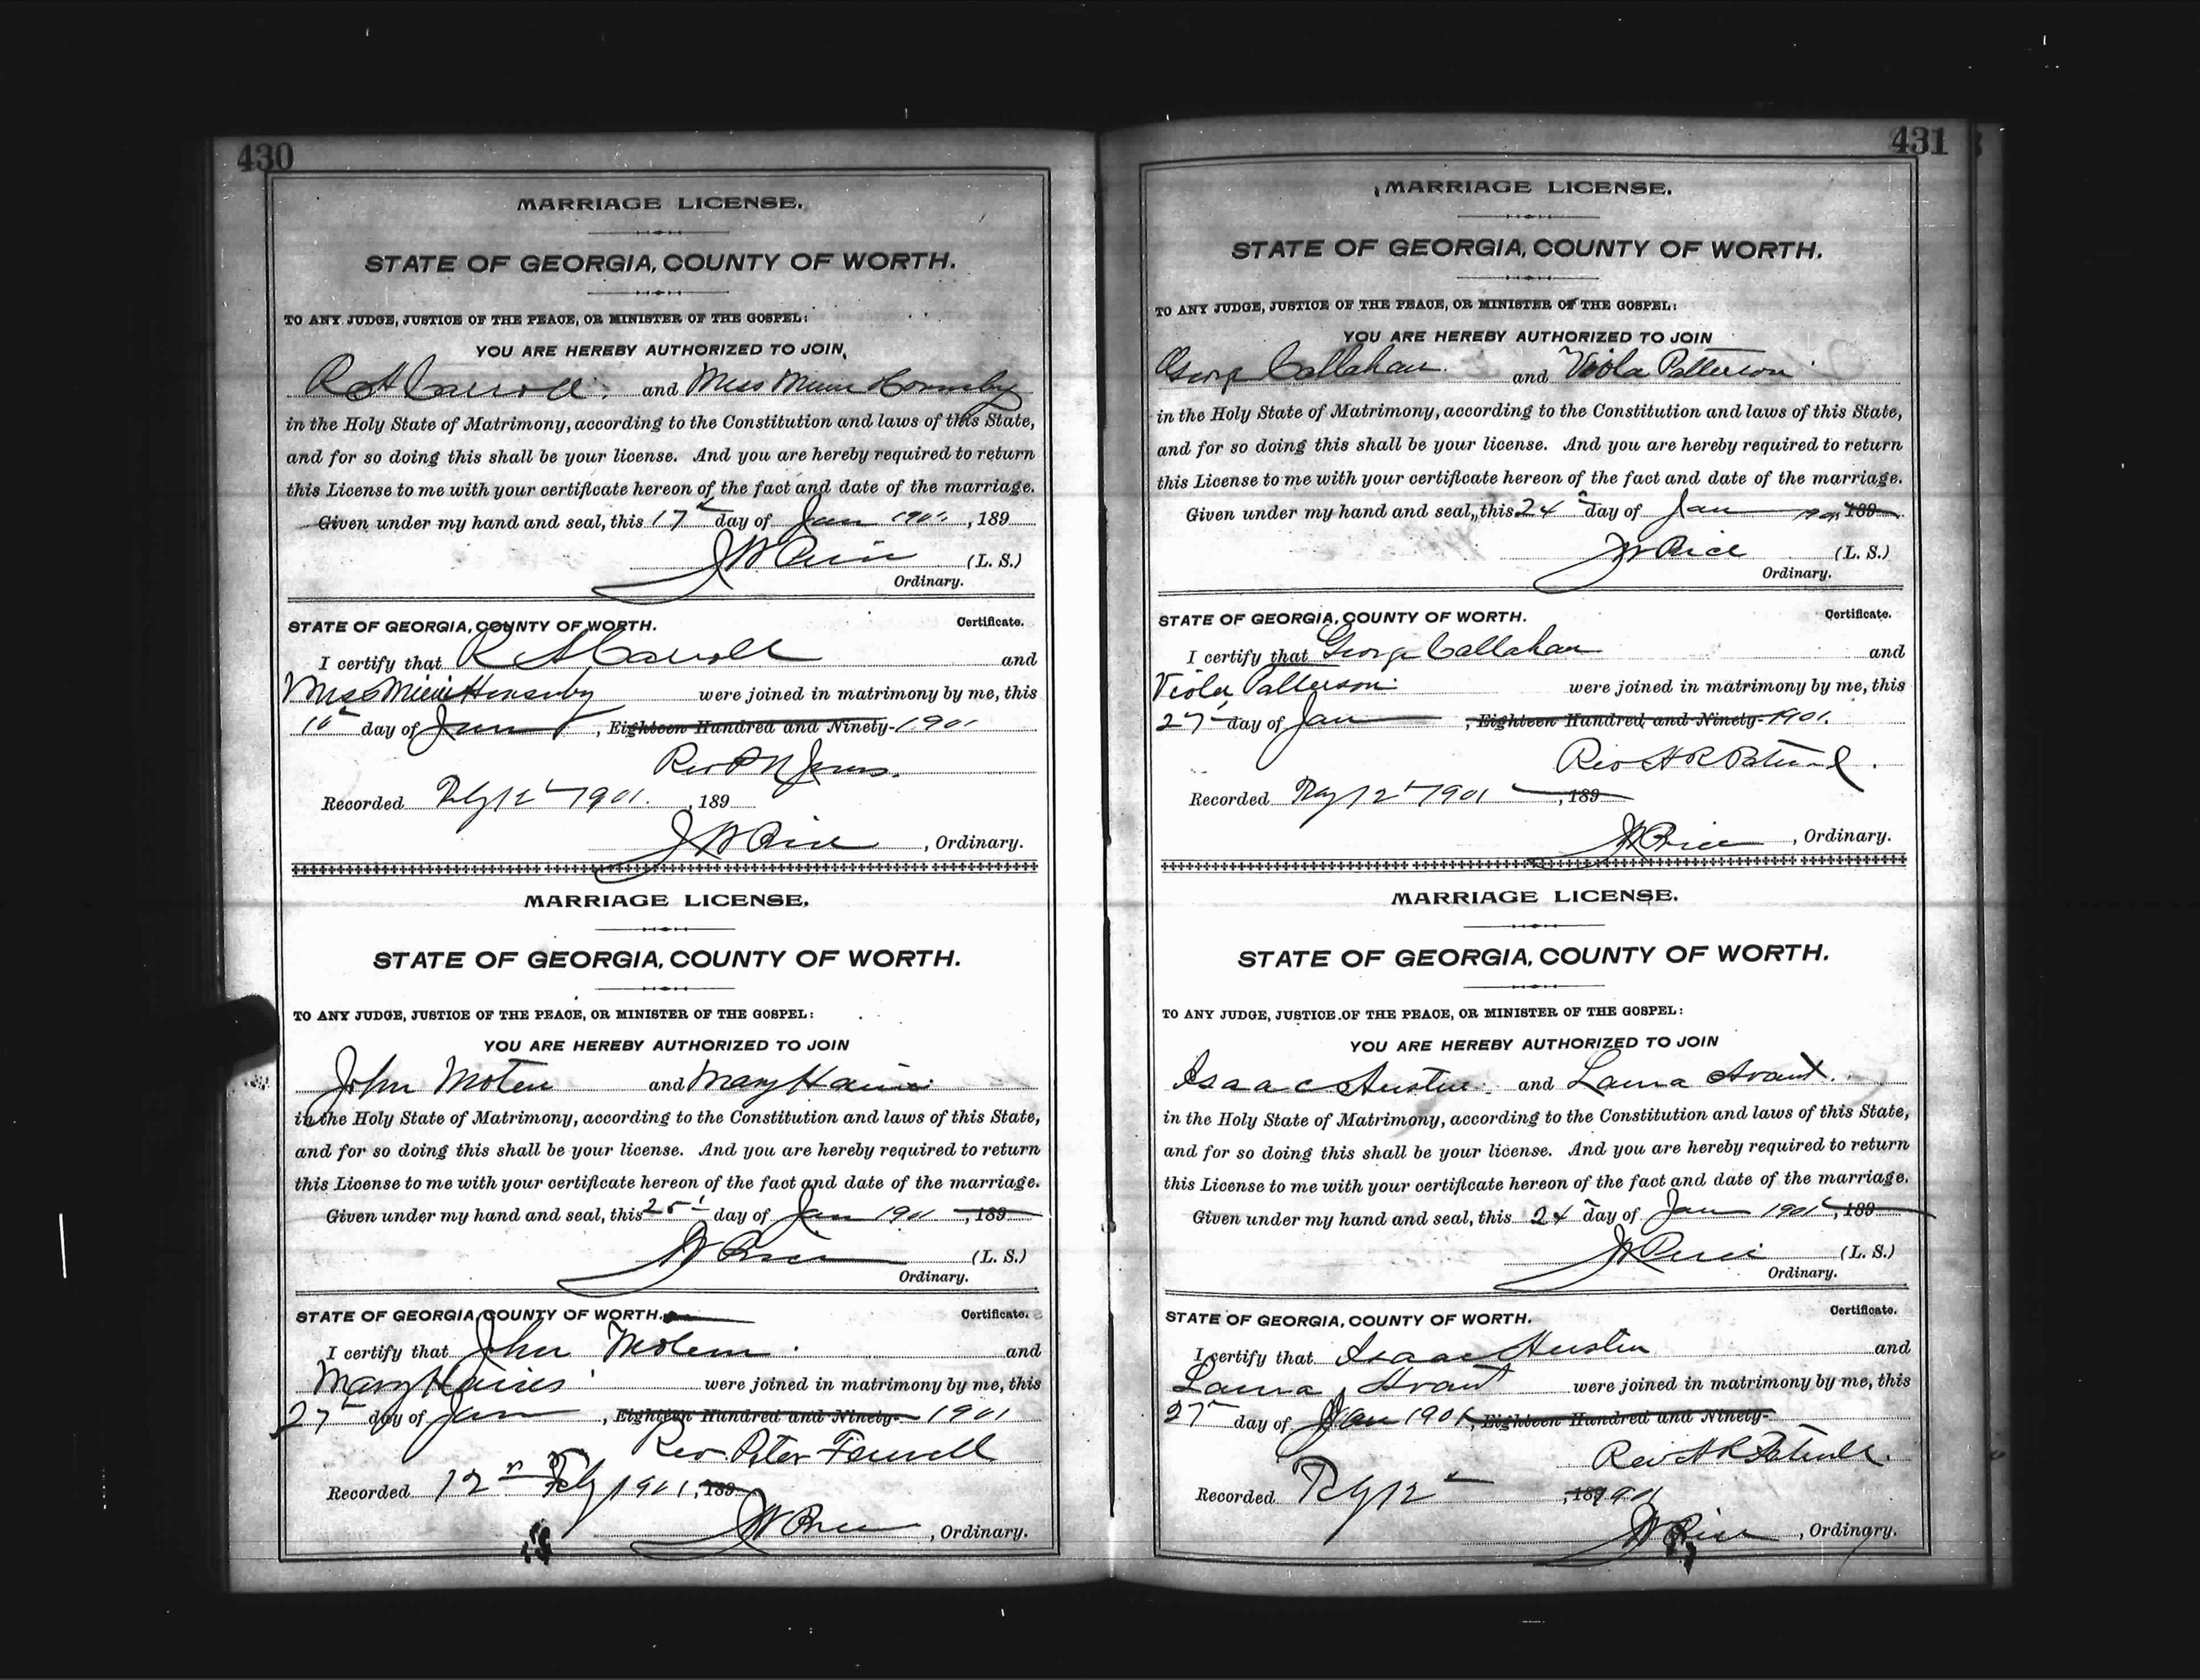 430
MARRIAGE LICENSE.
STATE OF GEORGIA, COUNTY OF WORTH.
TO ANY JUDGE, JUSTICE OF THE PEACE, OR MINISTER OF THE GOSPEL:
YOU ARE HEREBY AUTHORIZED TO JOIN,
R A Carroll. and Miss Hornsby
in the Holy State of Matrimony, according to the Constitution and laws of this State,
and for so doing this shall be your license. And you are hereby required to return
this License to me with your certificate hereon of the fact and date of the marriage.
Given under my hand and seal, this 17 day of Jan 1901, 189
J W Rice (L. S.)
Ordinary.
STATE OF GEORGIA, COUNTY OF WORTH. Certificate.
I certify that R A Carroll and
Miss were joined in matrimony by me, this
day of , Eighteen Hundred and Ninety- 1901
Rev
Recorded 12 1901. , 189
J W Rice , Ordinary.
MARRIAGE LICENSE.
STATE OF GEORGIA, COUNTY OF WORTH.
TO ANY JUDGE, JUSTICE OF THE PEACE, OR MINISTER OF THE GOSPEL:
YOU ARE HEREBY AUTHORIZED TO JOIN
John Moten and Mary Haines
in the Holy State of Matrimony, according to the Constitution and laws of this State,
and for so doing this shall be your license. And you are hereby required to return
this License to me with your certificate hereon of the fact and date of the marriage.
Given under my hand and seal, this 25 day of Jan 1901 , 189
J W Rice (L. S.)
Ordinary.
STATE OF GEORGIA, COUNTY OF WORTH. Certificate.
I certify that John Moten and
Mary Haines were joined in matrimony by me, this
27 day of Jan , Eighteen Hundred and Ninety- 1901
Rev Peter
Recorded 12 Feby 1901, 189
J W Rice , Ordinary.
431
MARRIAGE LICENSE.
STATE OF GEORGIA, COUNTY OF WORTH.
TO ANY JUDGE, JUSTICE OF THE PEACE, OR MINISTER OF THE GOSPEL:
YOU ARE HEREBY AUTHORIZED TO JOIN
George Callahan and Viola Patterson
in the Holy State of Matrimony, according to the Constitution and laws of this State,
and for so doing this shall be your license. And you are hereby required to return
this License to me with your certificate hereon of the fact and date of the marriage.
Given under my hand and seal, this 24 day of Jan 1901 189
J W Rice (L. S.)
Ordinary.
STATE OF GEORGIA, COUNTY OF WORTH. Certificate.
I certify that George Callahan and
Viola Patterson were joined in matrimony by me, this
27 day of Jan , Eighteen Hundred and Ninety- 1901.
Rev
Recorded 12 1901 , 189
J W Rice , Ordinary.
MARRIAGE LICENSE.
STATE OF GEORGIA, COUNTY OF WORTH.
TO ANY JUDGE, JUSTICE OF THE PEACE, OR MINISTER OF THE GOSPEL:
YOU ARE HEREBY AUTHORIZED TO JOIN
Isaac Austin and Laura Avant.
in the Holy State of Matrimony, according to the Constitution and laws of this State,
and for so doing this shall be your license. And you are hereby required to return
this License to me with your certificate hereon of the fact and date of the marriage.
Given under my hand and seal, this 24 day of Jan 1901, 189
J W Rice (L. S.)
Ordinary.
STATE OF GEORGIA, COUNTY OF WORTH. Certificate.
I certify that Isaac Austin and
Laura Avant were joined in matrimony by me, this
27 day of Jan 1901, Eighteen Hundred and Ninety-
Rev
Recorded Feby 12 , 189 1901
J W Rice , Ordinary.